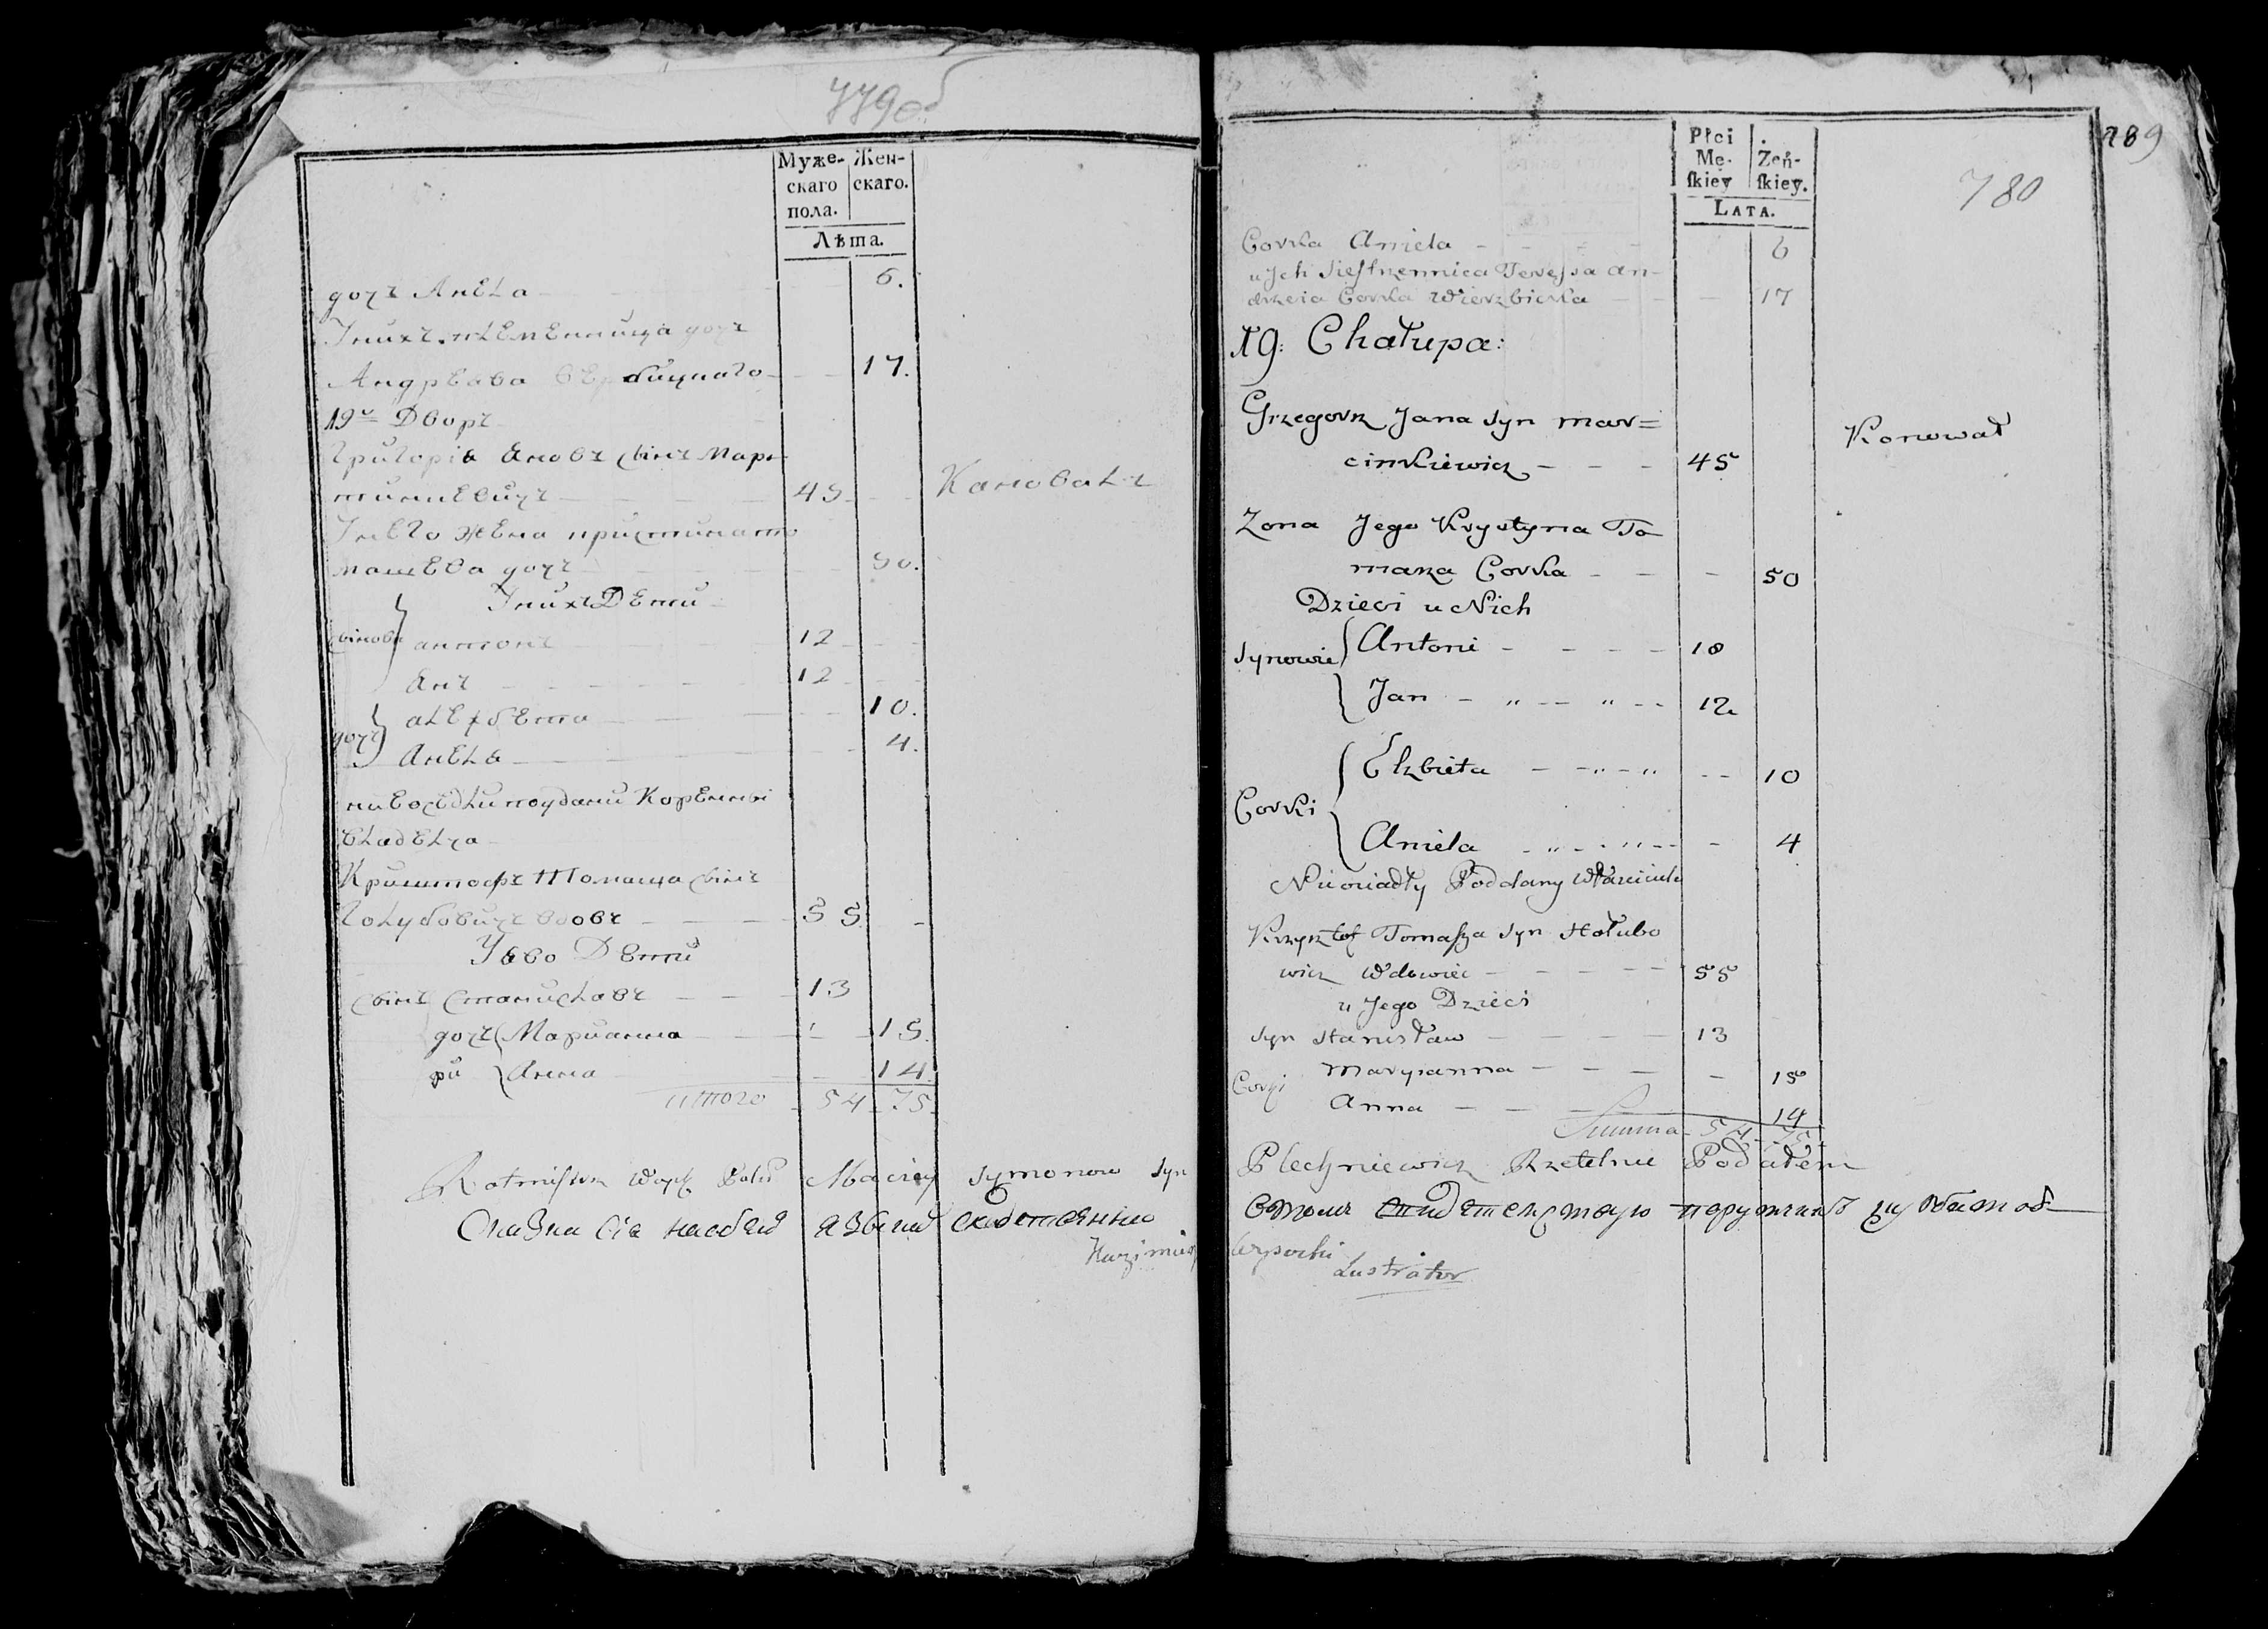 779об
Муже- Жен-
скаго скаго.
пола.
Лѣта.
дочъ Анеla 6.
Унихъ племенница дочъ
Андреева вербицкаго 17.
19й Дворъ
Григорiй Яновъ сынъ Мар-
тинкевичъ 45 Кановалъ
Унего жена кристина то
машева дочъ 50.
Унихъ Дети
сынове антонъ 12
Янъ 12
дочъ алежбета 10.
Анела 4.
ниеоседли подани Коренни
владелца
Криштофъ Томаша сынъ
Голубовичъ вдовъ 55
Уево Дети
сынъ Станиславъ 13
доче Марианна 15.
ри Анна 14.
итого 54 75
Rotmistrz Woysk Polsk Maciey Symonow Syn
Сказка сiя
Kazimierz
789
780
Płci
Mę- Zeń-
ſkiey ſkiey.
LATA.
Corka Aniela 6
u Jch Siestrzennica Teressa An-
drzeia Corka Wierzbicka 17
19: Chałupa:
Grzegorz Jana Syn Mar=
cinkiewicz 45 Konował
Zona Jego Krystyna To
masza Corka 50
Dzieci u Nich
Synowie Antoni 18
Jan 12
Corki Elzbieta 10
Aniela 4
Nieosiadły Poddany Własciciela
Krzysztof Tomasza Syn Hołubo
wicz Wdowiec 55
u Jego Dzieci
Syn Stanisław 13
Corki Maryanna 15
Anna 14
Summa 54 75
Plechniewicz Rzetelnie Podałem
Wysocki
Lustrator